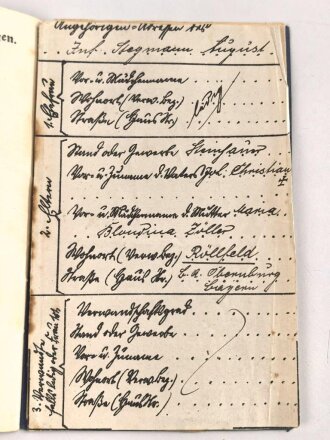 gen.
Angehörigen-Adressen des
Inf. Stegmann August
1. Ehefrau
Vor- u. Mädchenname
Wohnort (Verw. bez.)
Straße (Haus Nr.)
ledig
2. Eltern
Stand oder Gewerbe Steinhauer
Vor- u. Zuname d. Vaters Christian
I
Vor- u. Mädchenname d. Mutter Maria
Blondina Zöller
Wohnort (Verw. bez.) Röllfeld
Straße (Haus Nr.) b. A. Obernburg
Bayern
3. Verwandte
falls ledig oder
Verwandtschaftsgrad
Stand oder Gewerbe
Vor- u. Zuname
Wohnort (Verw. bez.)
Straße (Haus Nr.)